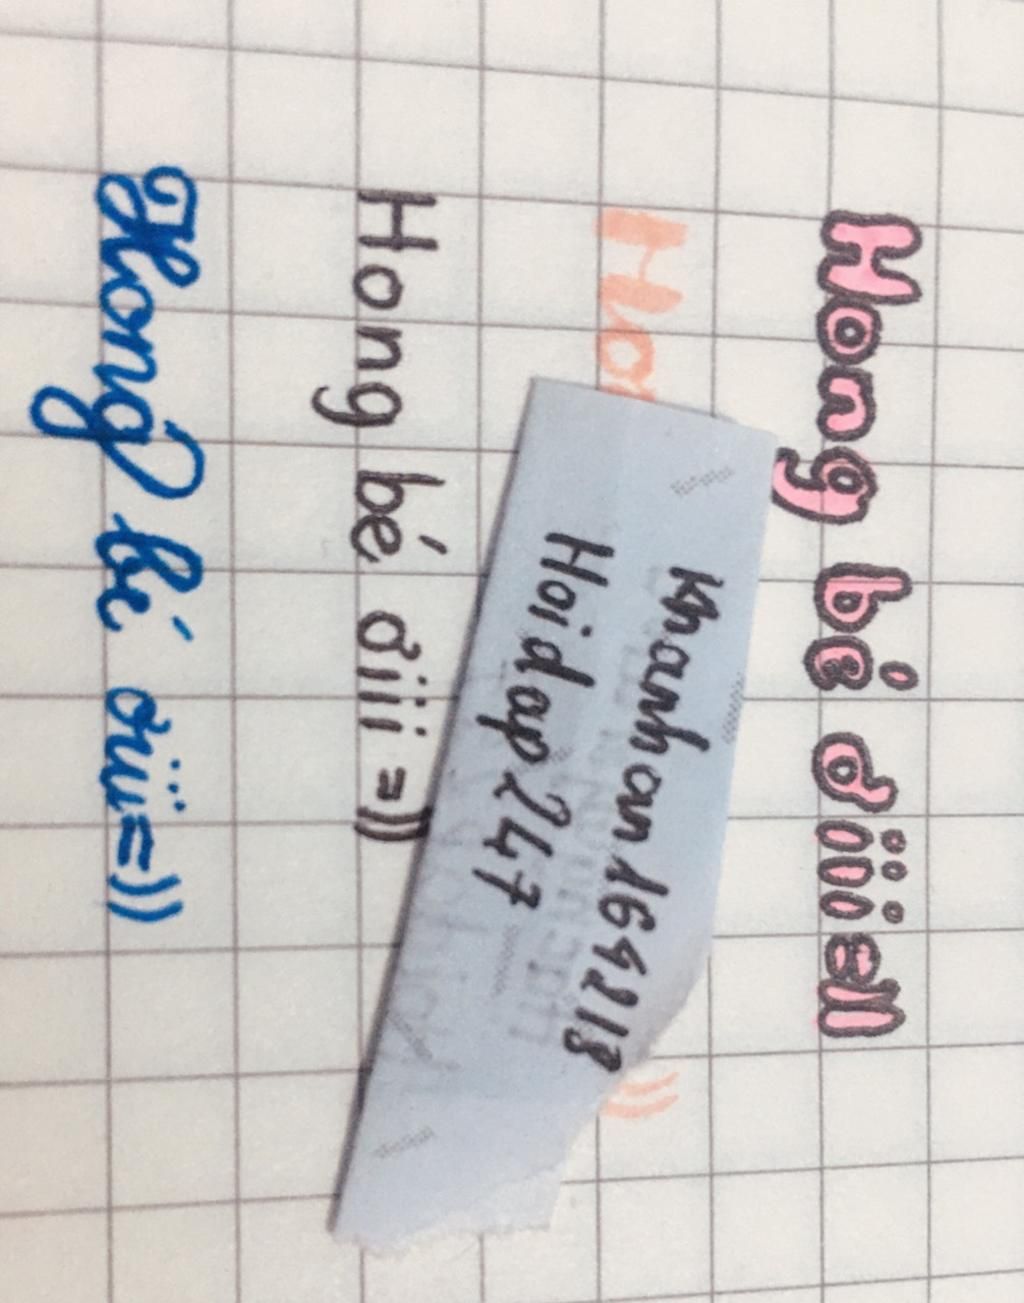 Hong bé ơiii =))
Hon
))
Khanhan169213
Hoidap247
Hong bé ơiii =))
Hong bé ơiii =))